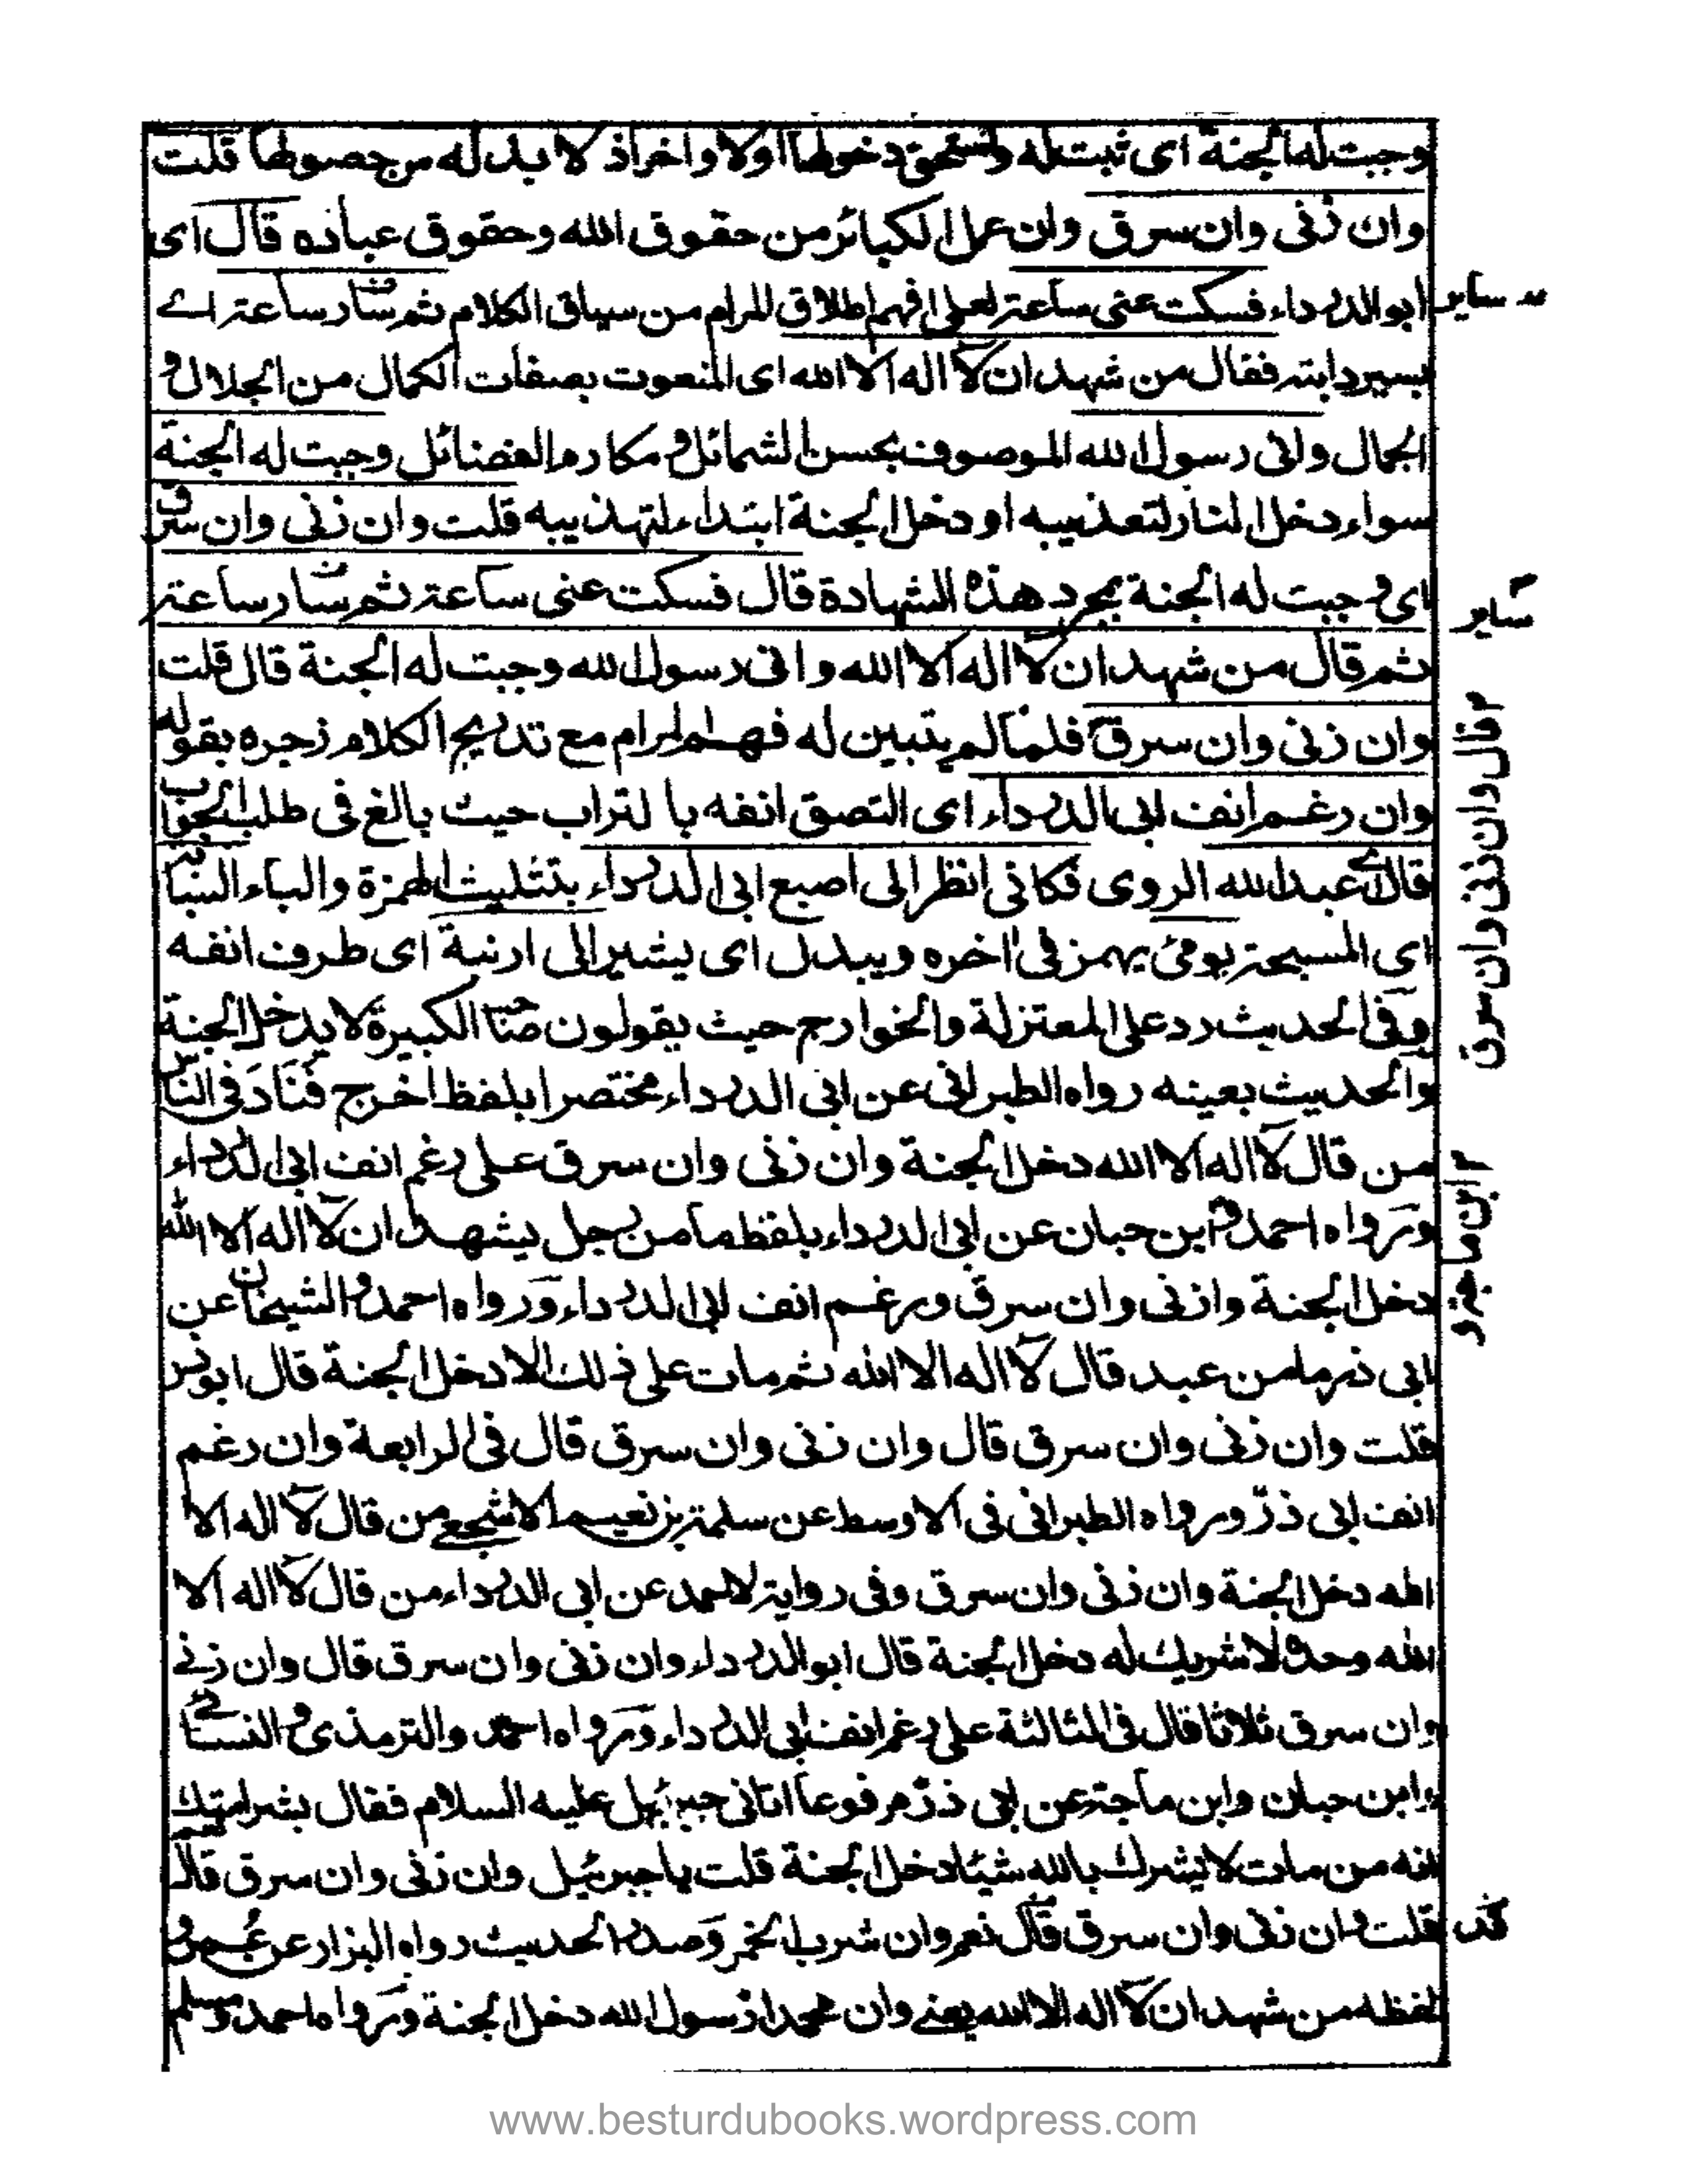 وجبت له الجنة اى ثبت له واستحق دخولها اولا واخرا اذ لا بد له من حصولها قلت
وان زنى وان سرق وان عمل الكبائر من حقوق الله وحقوق عباده قال اى
ابو الدرداء فسكت عنى ساعة لعلى افهم اطلاق المرام من سياق الكلام ثم سار ساعة اے
يسير دابته فقال من شهد ان لآ اله الا الله اى المنعوت بصفات الكمال من الجلال و
الجمال وانى رسول الله الموصوف بحسن الشمائل ومكارم الفضائل وجبت له الجنة
سواء دخل النار لتعذيبه او دخل الجنة ابتداء لتهذيبه قلت وان زنى وان سرق
اى وجبت له الجنة بمجرد هذه الشهادة قال فسكت عنى ساعة ثم سار ساعة
ثم قال من شهد ان لآ اله الا الله وانى رسول الله وجبت له الجنة قال قلت
وان زنى وان سرق فلما لم يتبين له فهم المرام مع تدريج الكلام زجره بقوله
وان رغم انف ابى الدرداء اى التصق انفه بالتراب حيث بالغ فى طلب الجواب
قال اے عبد الله الروى فكانى انظر الى اصبع ابى الدرداء بتثليث الهمزة والباء السبابة
اى المسبحة يومئ يهمز فى اخره ويبدل اى يشير الى ارنبة اى طرف انفه
وفى الحديث رد على المعتزلة والخوارج حيث يقولون صاحب الكبيرة لا يدخل الجنة
والحديث بعينه رواه الطبرانى عن ابى الدرداء مختصرا بلفظ اخرج فناد فى الناس
من قال لآ اله الا الله دخل الجنة وان زنى وان سرق على رغم انف ابى الدرداء
ورواه احمد وابن حبان عن ابى الدرداء بلفظ ما من رجل يشهد ان لآ اله الا الله
دخل الجنة وان زنى وان سرق ورغم انف ابى الدرداء ورواه احمد والشيخان عن
ابى ذر ما من عبد قال لآ اله الا الله ثم مات على ذلك الا دخل الجنة قال ابو ذر
قلت وان زنى وان سرق قال وان زنى وان سرق قال فى الرابعة وان رغم
انف ابى ذر ورواه الطبرانى فى الاوسط عن سلمة بن نعيم الاشجعى من قال لآ اله الا
الله دخل الجنة وان زنى وان سرق وفى رواية لاحمد عن ابى الدرداء من قال لآ اله الا
الله وحده لا شريك له دخل الجنة قال ابو الدرداء وان زنى وان سرق قال وان زنے
وان سرق ثلاثا قال فى الثالثة على رغم انف ابى الدرداء ورواه احمد والترمذى والنسائے
وابن حبان وابن ماجة عن ابى ذر مرفوعا اتانى جبرئيل عليه السلام فقال بشر امتك
انه من مات لا يشرك بالله شيئا دخل الجنة قلت يا جبرئيل وان زنى وان سرق قال نعم
قلت وان زنى وان سرق قال نعم وان شرب الخمر وصدر الحديث رواه البزار عن عمر و
لفظه من شهد ان لآ اله الا الله يعنے وان محمدا رسول الله دخل الجنة ورواه احمد ومسلم
ساير
ساير
قال وان زنى وان سرق
ابن ماجة و
www.besturdubooks.wordpress.com